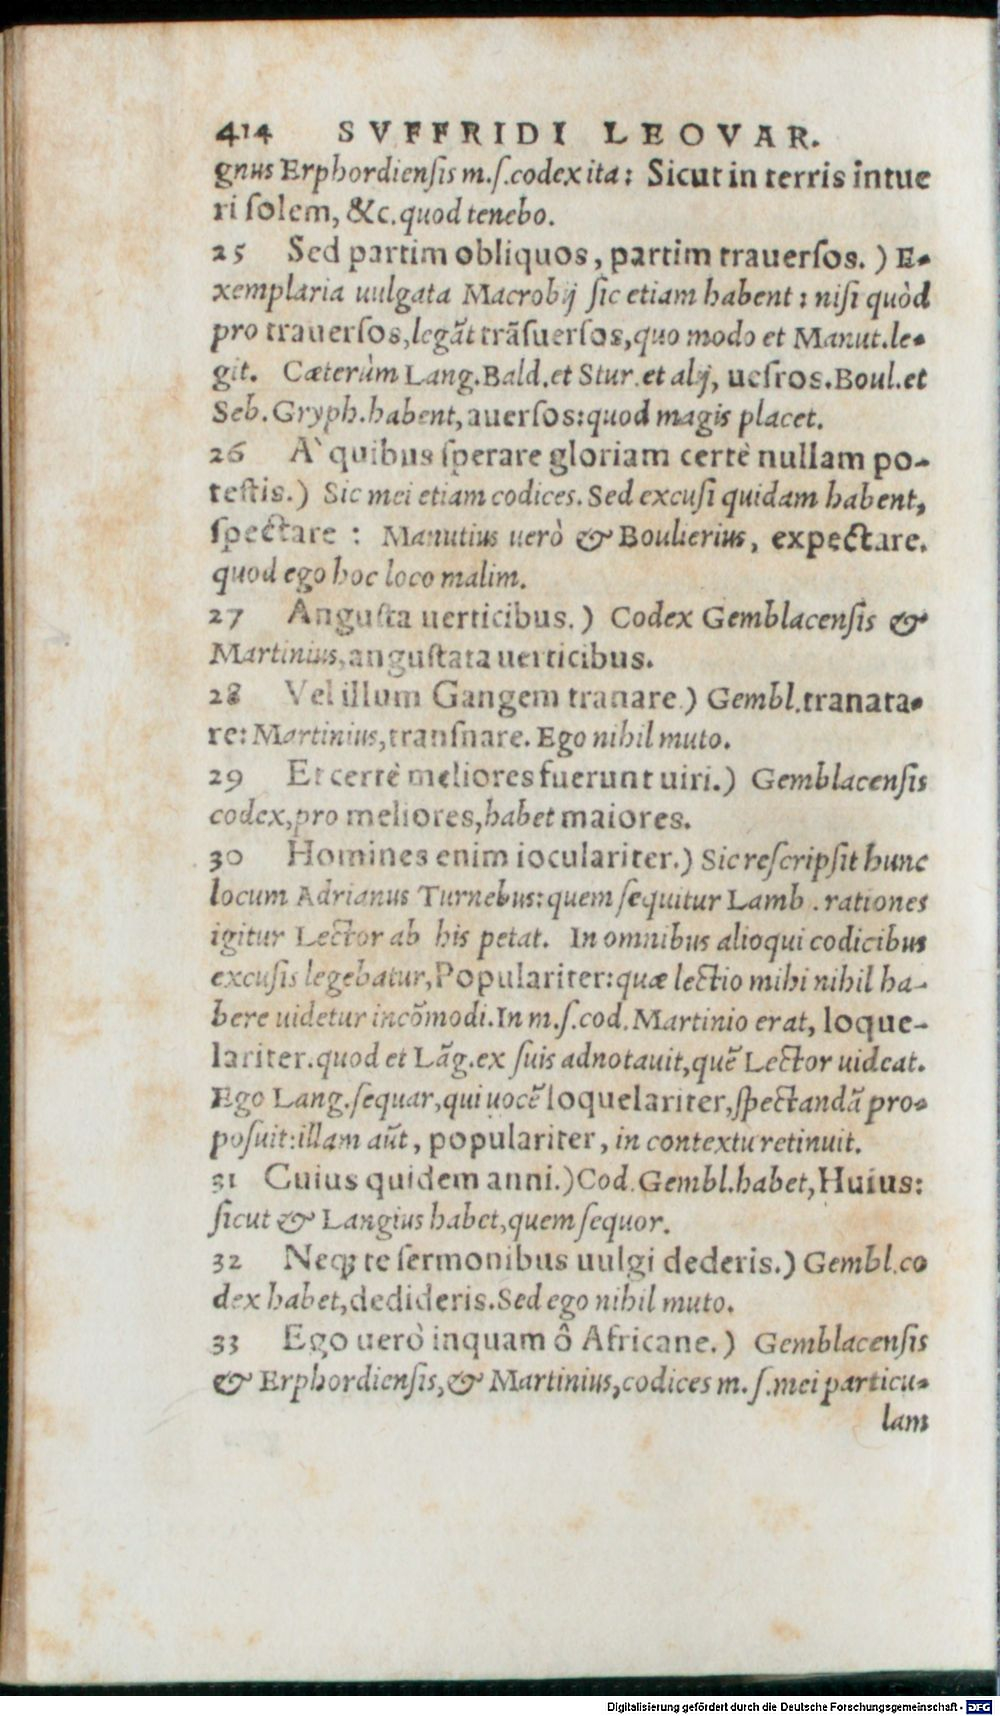 414 SVFFRIDI LEOVAR.
gnus Erphordiensis m.ſ.codex ita: Sicut in terris intue
ri ſolem, &c. quod tenebo.
25 Sed partim obliquos, partim trauerſos.) E-
xemplaria uulgata Macrobij ſic etiam habent: niſi quòd
pro trauerſos,legāt trāſuerſos,quo modo et Manut.le-
git. Cæterùm Lang.Bald.et Stur.et alij, ueſros.Boul.et
Seb.Gryph.habent,auerſos:quod magis placet.
26 A` quibus ſperare gloriam certè nullam po-
teſtis.) Sic mei etiam codices. Sed excuſi quidam habent,
ſpectare : Manutius uerò & Boulierius, expectare.
quod ego hoc loco malim.
27 Anguſta uerticibus.) Codex Gemblacenſis &
Martinius,anguſtata uerticibus.
28 Vel illum Gangem tranare.) Gembl.tranata-
re: Martinius,tranſnare. Ego nihil muto.
29 Et certè meliores fuerunt uiri.) Gemblacenſis
codex,pro meliores,habet maiores.
30 Homines enim ioculariter.) Sic reſcripſit hunc
locum Adrianus Turnebus:quem ſequitur Lamb.rationes
igitur Lector ab his petat. In omnibus alioqui codicibus
excuſis legebatur,Populariter:quæ lectio mihi nihil ha-
bere uidetur incōmodi.In m.ſ.cod.Martinio erat, loque-
lariter.quod et Lāg.ex ſuis adnotauit,quē Lector uideat.
Ego Lang.ſequar,qui uocē loquelariter,ſpectandā pro-
poſuit:illam aūt, populariter, in contextu retinuit.
31 Cuius quidem anni.)Cod.Gembl.habet,Huius:
ſicut & Langius habet,quem ſequor.
32 Neq; te ſermonibus uulgi dederis.) Gembl.co
dex habet,dedideris.Sed ego nihil muto.
33 Ego uerò inquam ô Africane.) Gemblacenſis
& Erphordienſis,& Martinius,codices m.ſ.mei particu-
lam
Digitalisierung gefördert durch die Deutsche Forschungsgemeinschaft - DFG